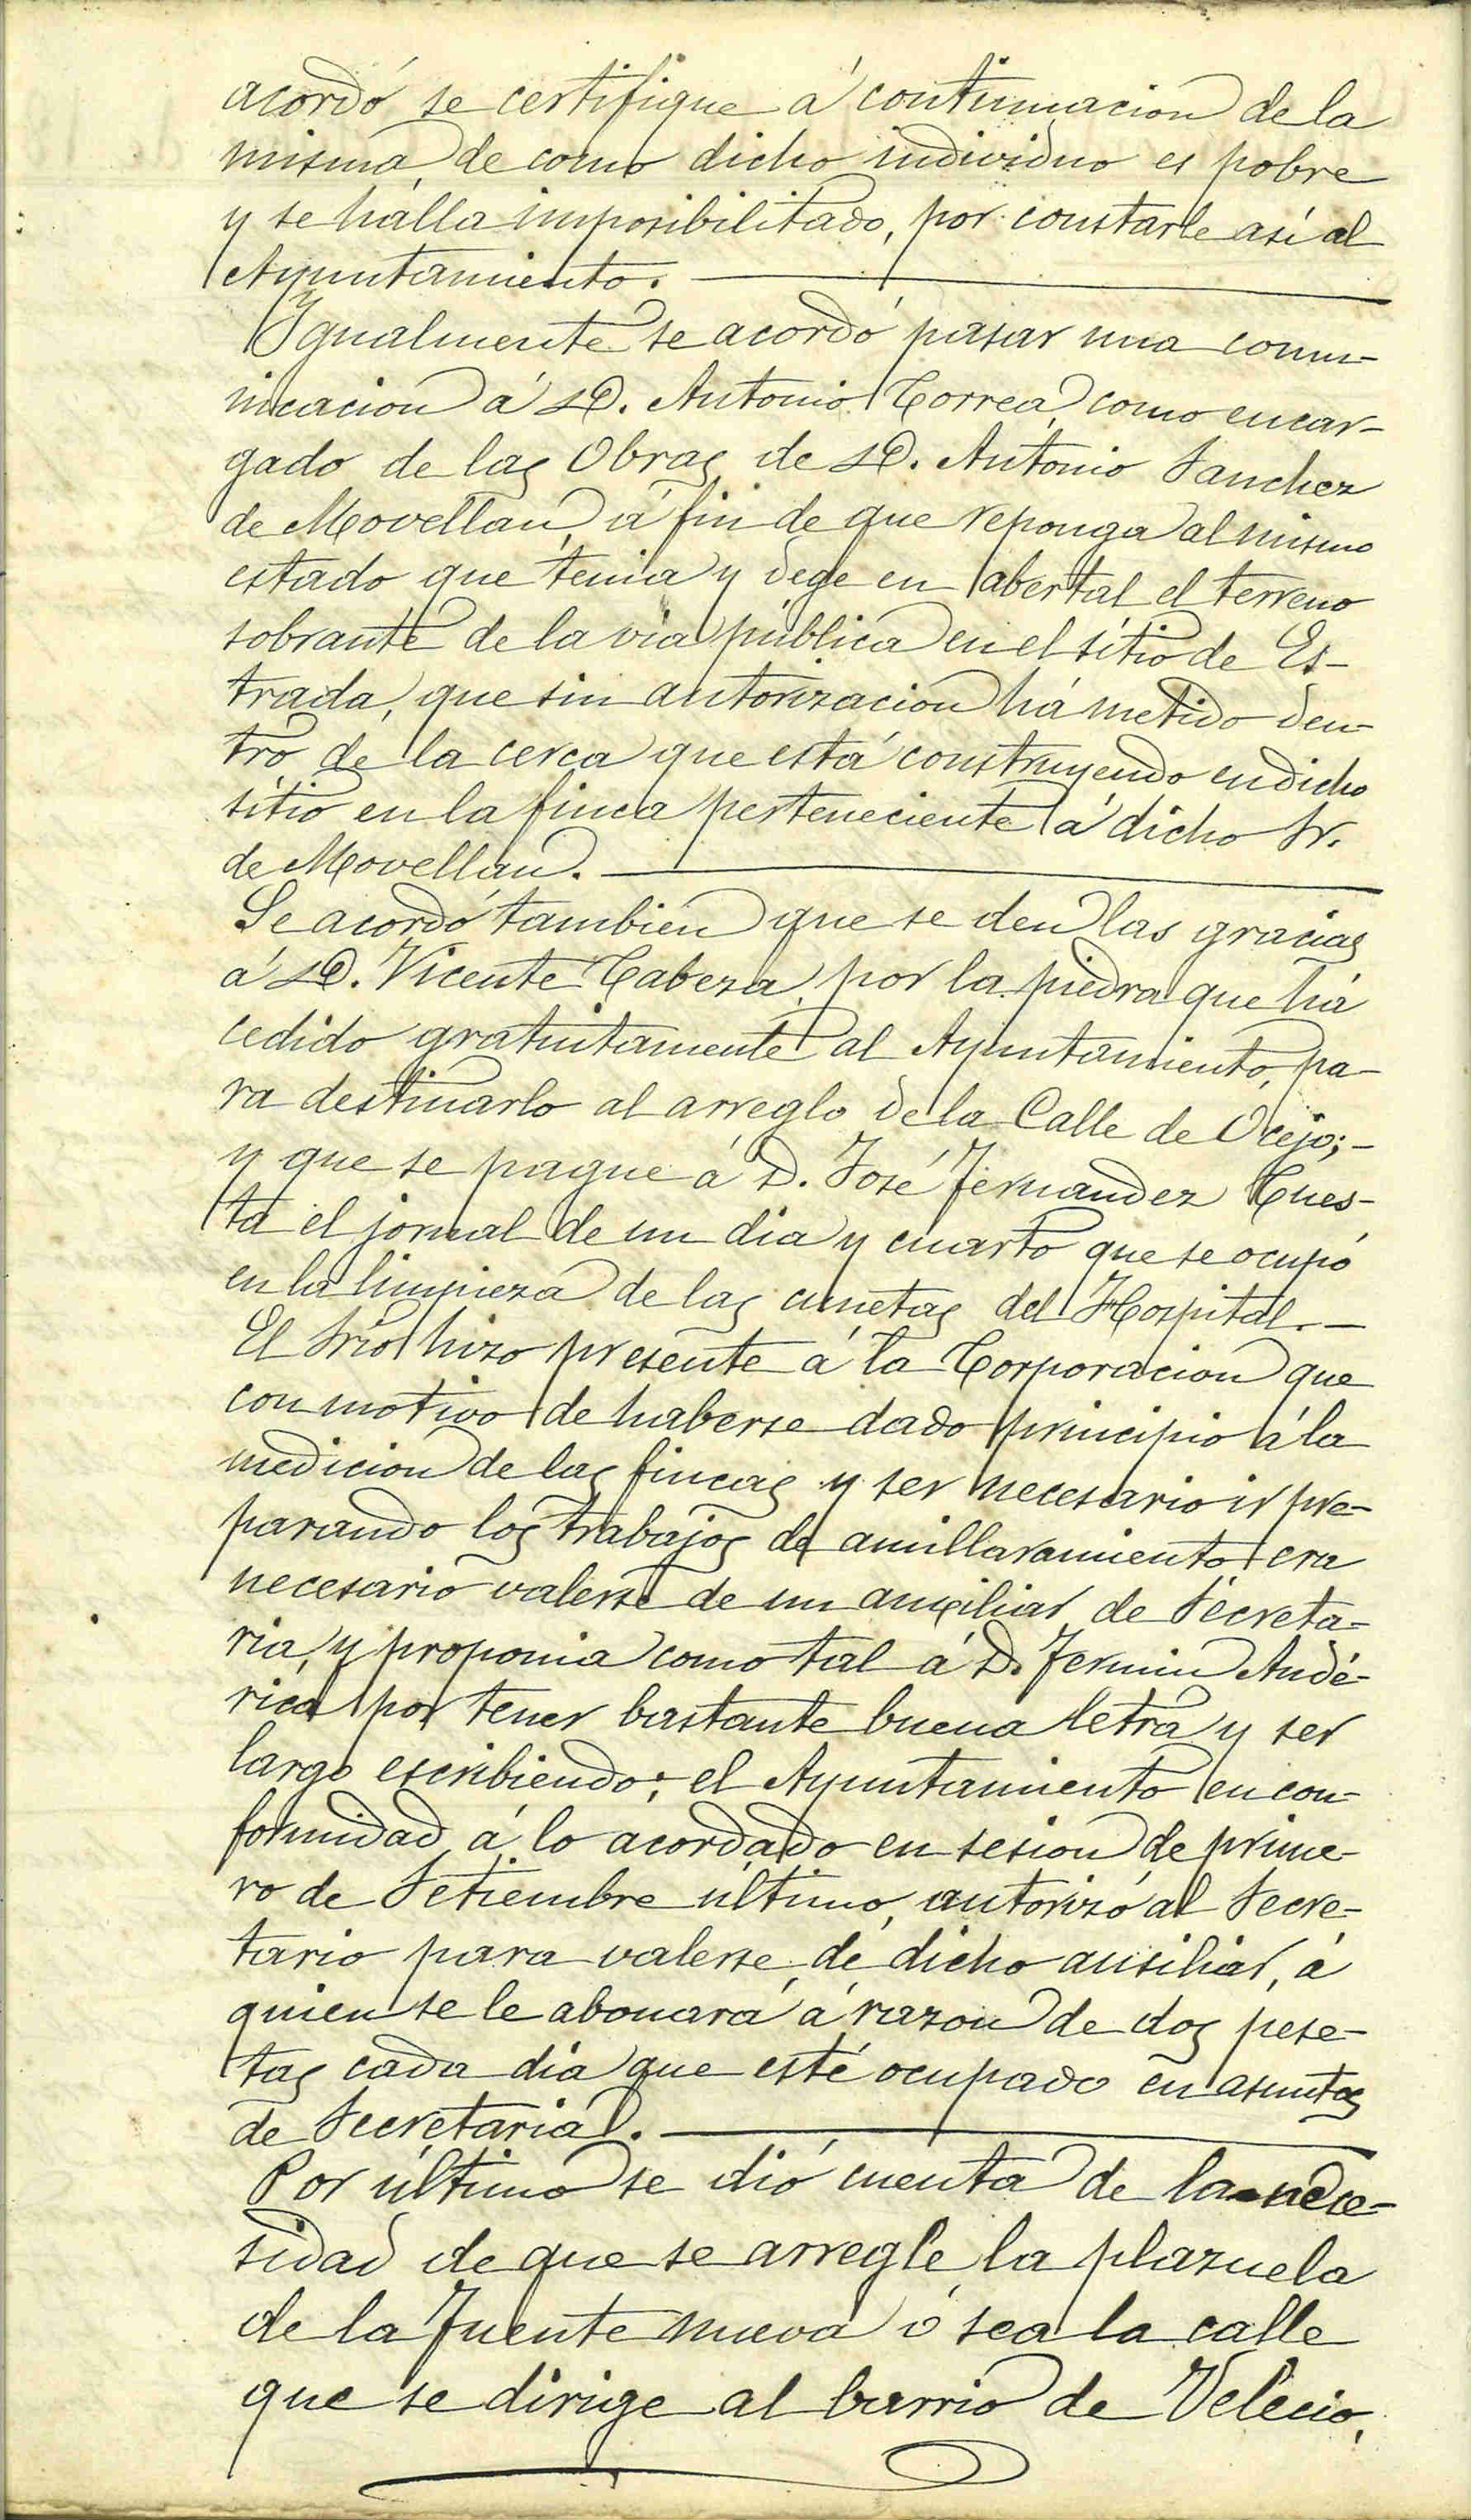 acordó se certifique á continuacion de la
misma, de como dicho individuo es pobre
y se halla imposibilitado, por constarle así al
Ayuntamiento.
Igualmente se acordó pasar una comu-
nicacion á D. Antonio Correa, como encar-
gado de las Obras de D. Antonio Sanchez
de Movellan, á fin de que reponga al mismo
estado que tenia y dege en abertal el terreno
sobrante de la via pública en el sitio de Es-
trada, que sin autorizacion há metido den-
tro de la cerca que está construyendo en dicho
sitio en la finca perteneciente á dicho Sr.
de Movellan.
Se acordó tambien que se den las gracias
á D. Vicente Cabeza, por la piedra que há
cedido gratuitamente al Ayuntamiento, pa-
ra destinarlo al arreglo de la Calle de Ocejo;-
y que se pague á D. José Fernandez Cues-
ta el jornal de un dia y cuarto que se ocupó
en la limpieza de las cunetas del Hospital.-
El Srio hizo presente á la Corporacion que
con motivo de haberse dado principio á la
medicion de las fincas y ser necesario ir pre-
parando los trabajos de amillaramiento, era
necesario valerse de un auxiliar de Secreta-
ria, y proponia como tal á D. Fermin Andé-
rica por tener bastante buena letra y ser
largo escribiendo; el Ayuntamiento en con-
formidad á lo acordado en sesion de prime-
ro de Setiembre último, autorizó al Secre-
tario para valerse de dicho ausiliar, á
quien se le abonará á razon de dos pese-
tas cada dia que esté ocupado en asuntos
de Secretaria.
Por último se dió cuenta de la nece-
sidad de que se arregle la plazuela
de la Fuente nueva ó sea la calle
que se dirige al barrio de Velecio,